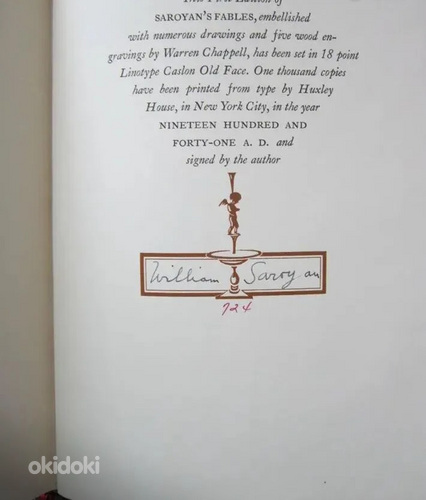 This First Edition of
SAROYAN'S FABLES, embellished
with numerous drawings and five wood en-
gravings by Warren Chappell, has been set in 18 point
Linotype Caslon Old Face. One thousand copies
have been printed from type by Huxley
House, in New York City, in the year
NINETEEN HUNDRED AND
FORTY-ONE A. D. and
signed by the author
William Saroyan
724
okidoki